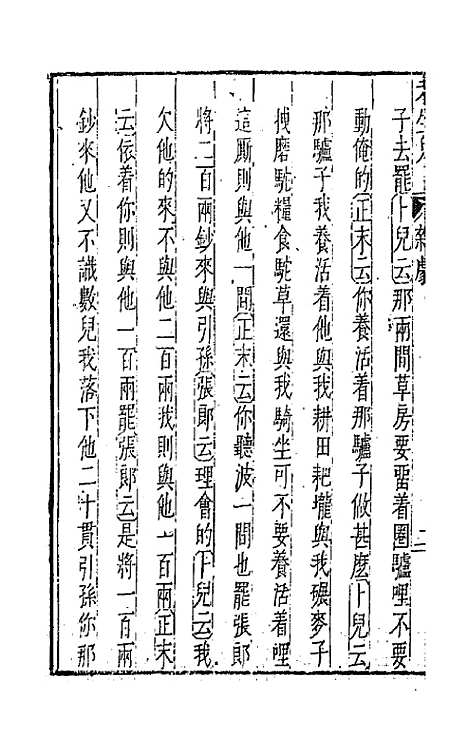 子去罷卜兒云那兩間草房要畱着圈驢哩不要
動俺的正末云你養活着那驢子做甚麽卜兒云
那驢子我養活着他與我耕田耙壠與我碾麥子
拽磨駝糧食駝草還與我騎坐可不要養活着哩
這厮則與他一間正末云你聽波一間也罷張郎
將二百兩鈔來與引孫張郎云理會的卜兒云我
欠他的來不與他二百兩我則與他一百兩正末
云依着你則與他一百兩罷張郎云是將一百兩
鈔來他又不識數兒我落下他二十貫引孫你那